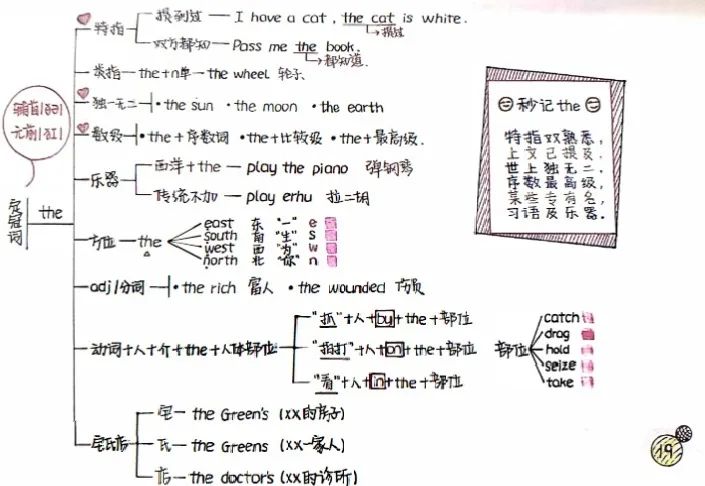 特指
提到过 — I have a cat, the cat is white.
→提过
双方都知 — Pass me the book.
→都知道.
类指 — the+n单 — the wheel 轮子
辅前/ðə/
元前/ðɪ/
独一无二 ·the sun ·the moon ·the earth
数级 ·the+序数词 ·the+比较级 ·the+最高级.
乐器
西洋+the — play the piano 弹钢琴
传统不加 — play erhu 拉二胡
定冠词 the
方位 — the
east 东 "一" e
south 南 "生" s
west 西 "为" w
north 北 "你" n
adj/分词 ·the rich 富人 ·the wounded 伤员
动词+人+介+the+人体部位
"抓"+人+by+the+部位
"拍打"+人+on+the+部位
"看"+人+in+the+部位
部位
catch
drag
hold
seize
take
宅氏店
宅 — the Green's (xx的房子)
氏 — the Greens (xx一家人)
店 — the doctor's (xx的诊所)
秒记 the
特指双熟悉,
上文已提及.
世上独无二,
序数最高级,
某些专有名,
习语及乐器.
19